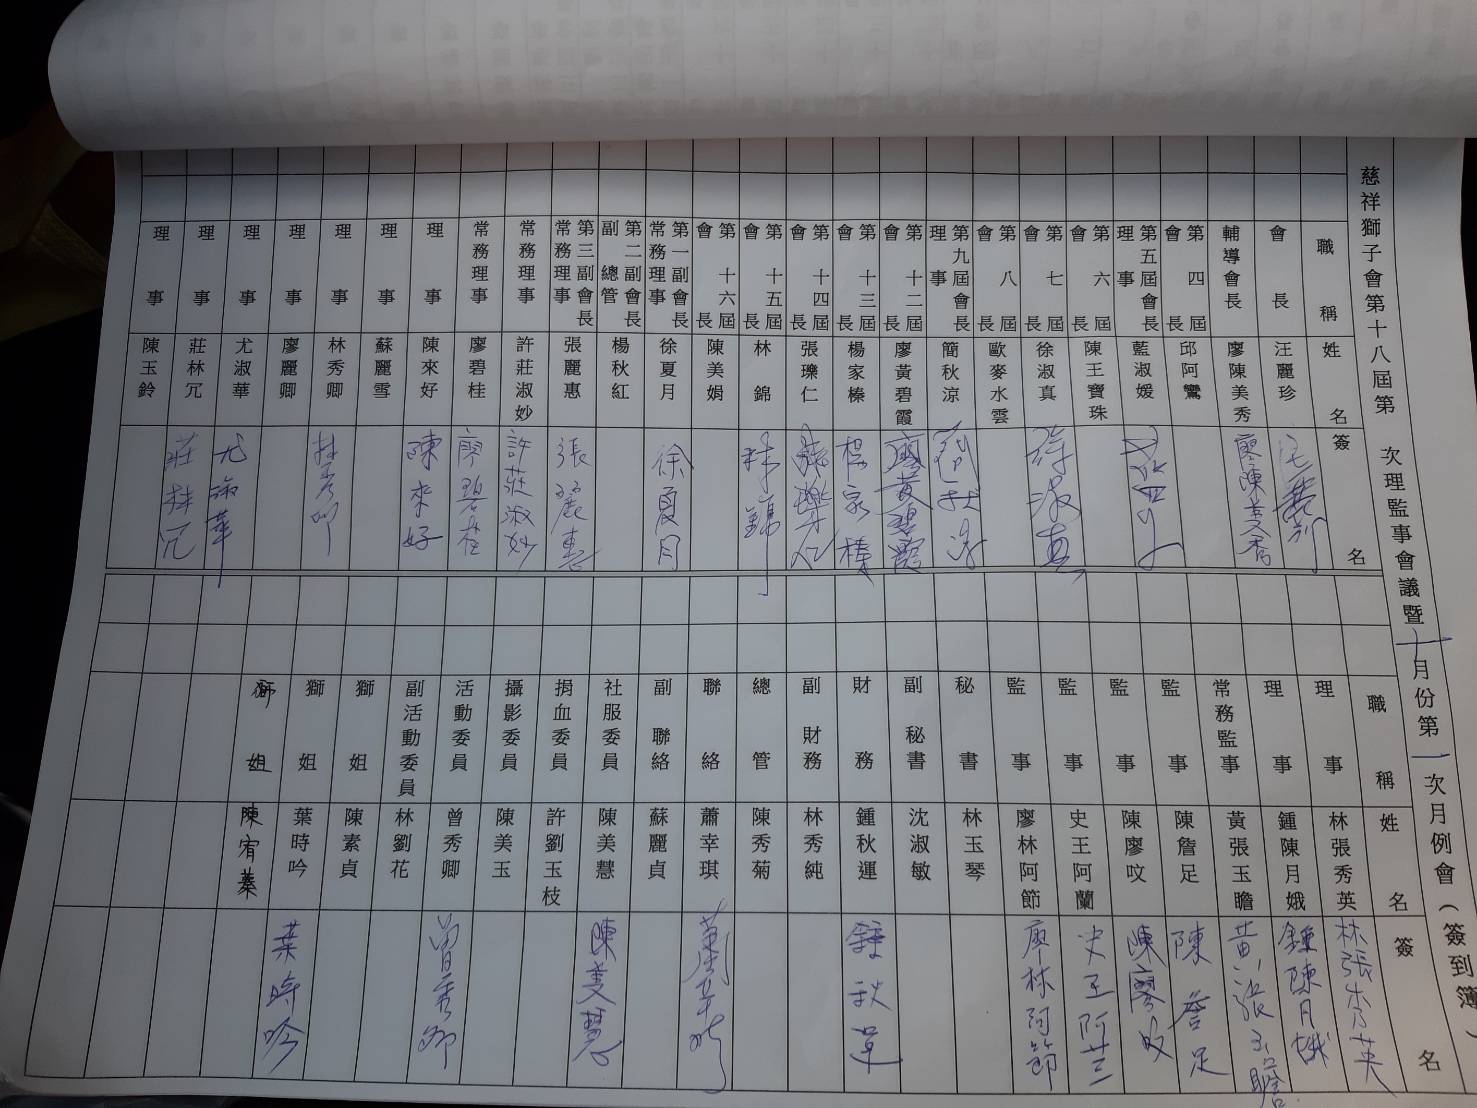 慈祥獅子會第十八屆第 次理監事會議暨十月份第一次月例會（簽到簿）
職稱 姓名 簽名
會長 汪麗珍
輔導會長 廖陳美秀 廖陳美秀
第四屆會長 邱阿鸞
第五屆會長 理事 藍淑媛
第六屆會長 陳王寶珠
第七屆會長 徐淑真 徐淑真
第八屆會長 歐麥水雲
第九屆會長 理事 簡秋涼 簡秋涼
第十二屆會長 廖黃碧霞 廖黃碧霞
第十三屆會長 楊家榛 楊家榛
第十四屆會長 張瓅仁 張瓅仁
第十五屆會長 林錦 林錦
第十六屆會長 陳美娟
第一副會長 常務理事 徐夏月 徐夏月
第二副會長 副總管 楊秋紅
第三副會長 常務理事 張麗惠 張麗惠
常務理事 許莊淑妙 許莊淑妙
常務理事 廖碧桂 廖碧桂
理事 陳來好 陳來好
理事 蘇麗雪
理事 林秀卿 林秀卿
理事 廖麗卿
理事 尤淑華 尤淑華
理事 莊林冗 莊林冗
理事 陳玉鈴
職稱 姓名 簽名
理事 林張秀英 林張秀英
理事 鍾陳月娥 鍾陳月娥
常務監事 黃張玉瞻 黃張玉瞻
監事 陳詹足 陳詹足
監事 陳廖呅 陳廖呅
監事 史王阿蘭 史王阿兰
監事 廖林阿節 廖林阿節
秘書 林玉琴
副秘書 沈淑敏
財務 鍾秋運 鍾秋運
副財務 林秀純
總管 陳秀菊
聯絡 蕭幸琪 蕭幸琪
副聯絡 蘇麗貞
社服委員 陳美慧 陳美慧
捐血委員 許劉玉枝
攝影委員 陳美玉
活動委員 曾秀卿 曾秀卿
副活動委員 林劉花
獅姐 陳素貞
獅姐 葉時吟 葉時吟
獅姐 陳宥蓁